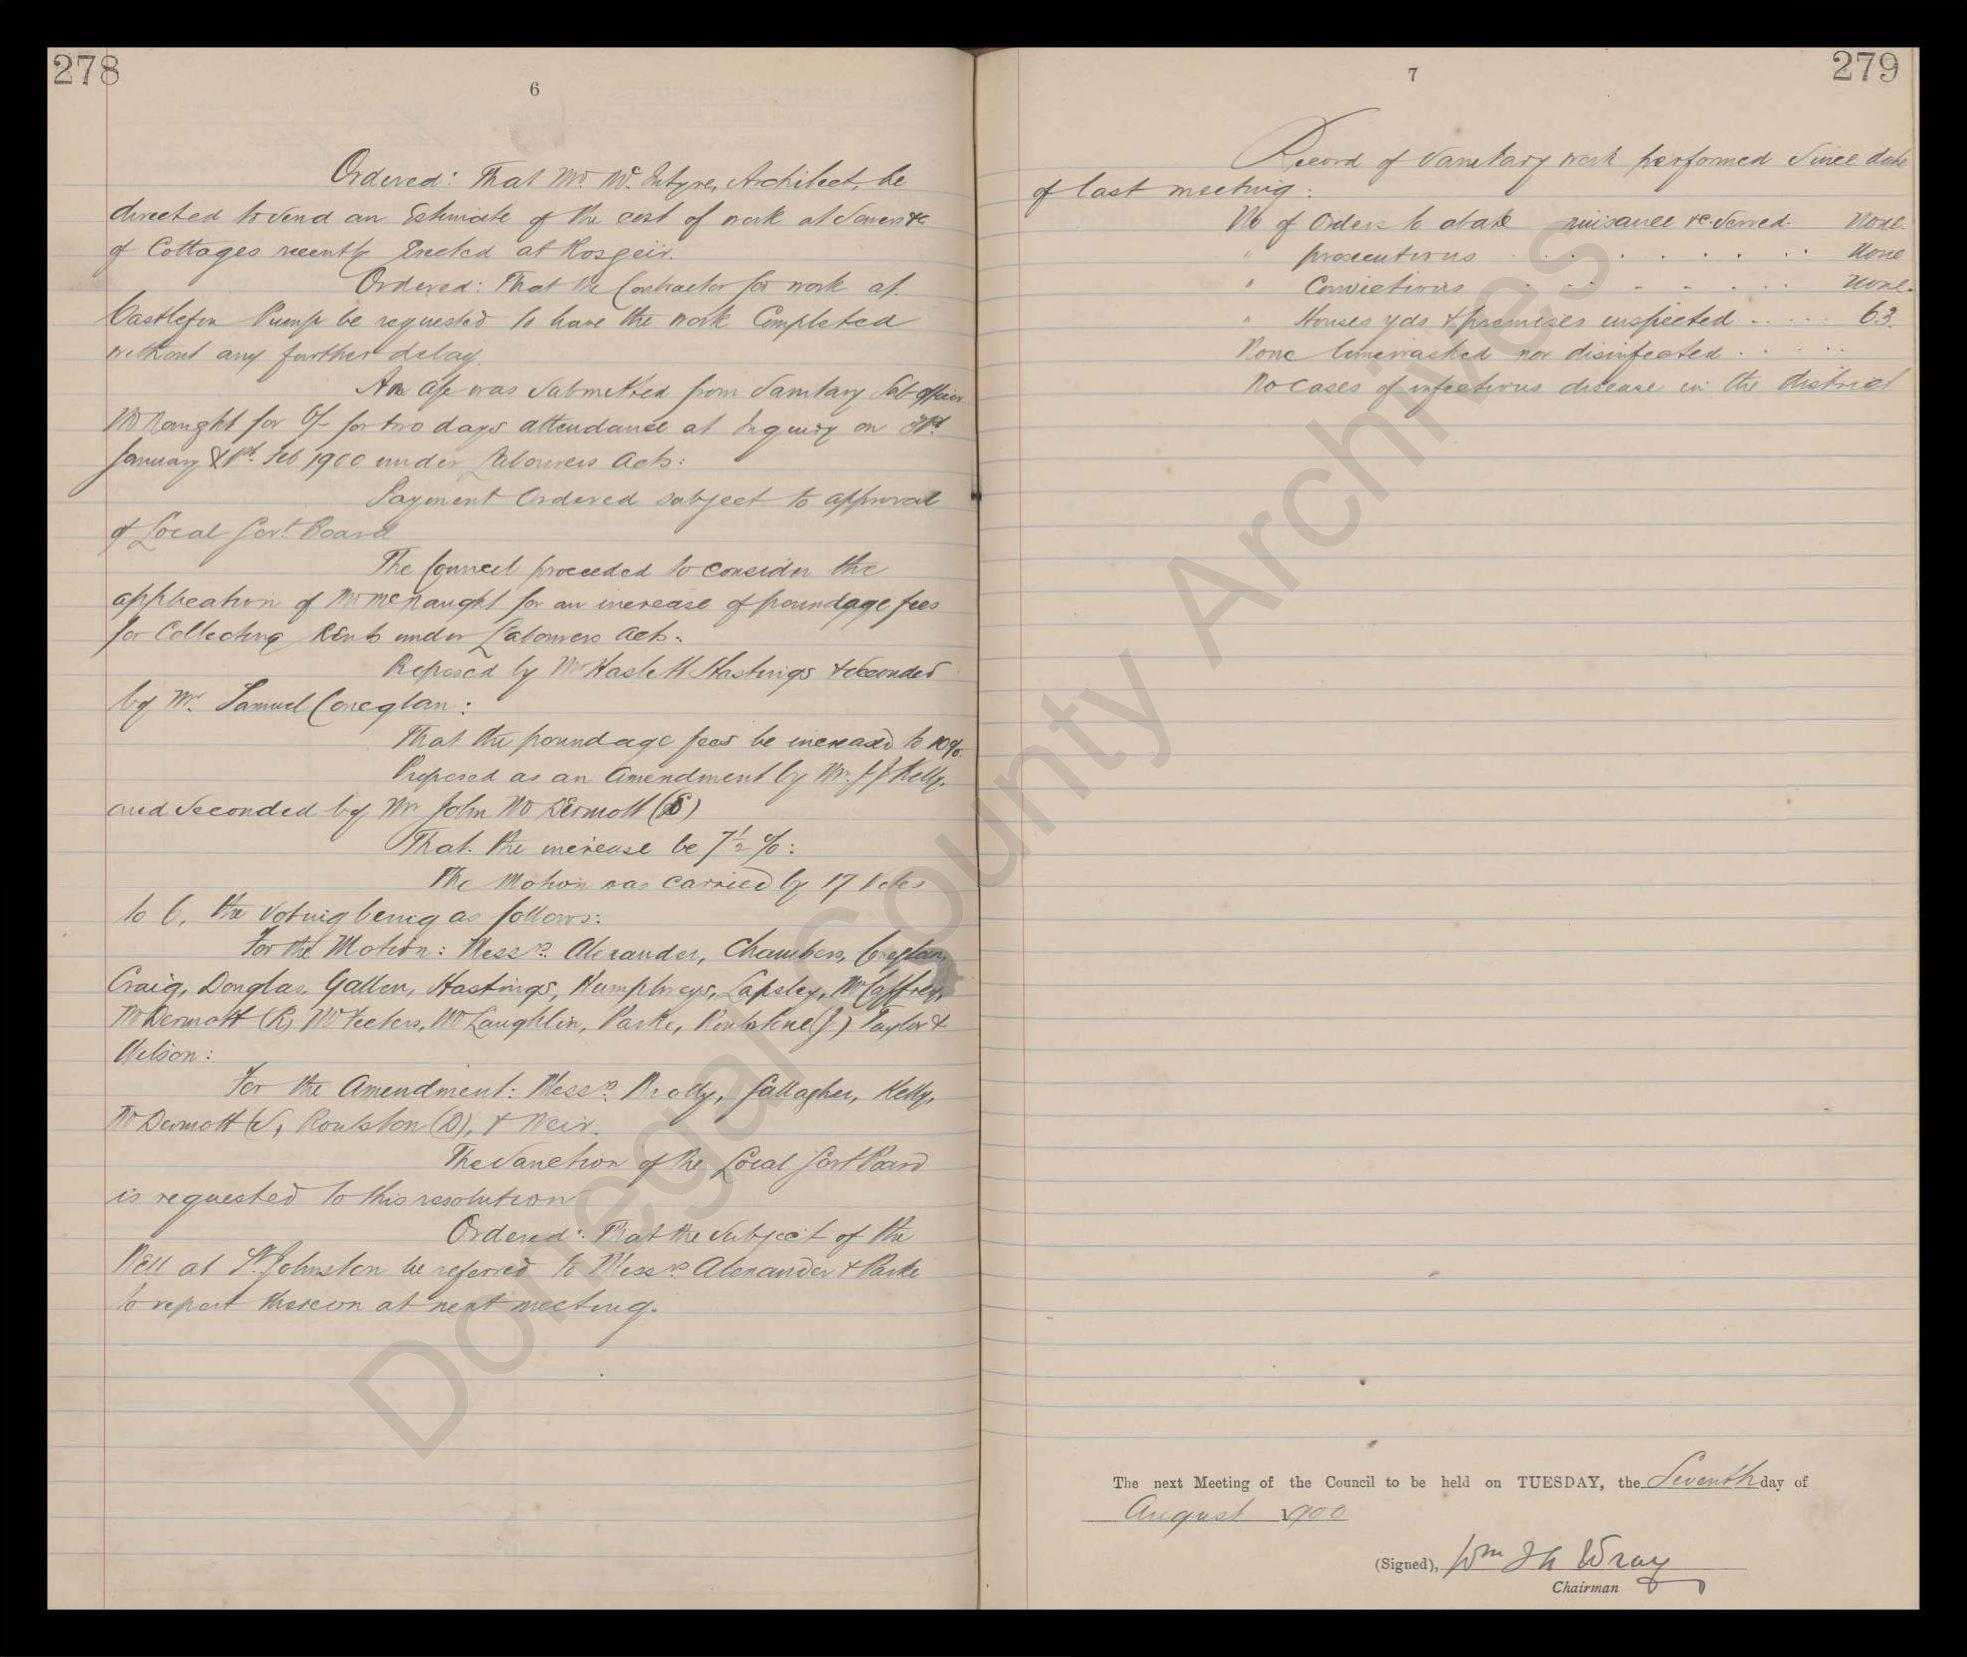 278
6
Ordered: That Mr. McIntyre, Architect, be
directed to send an Estimate of the cost of work at Sewers &c
of Cottages recently Erected at Rosgeir.
Ordered: That the Contractor for work at
Castlefin Pump be requested to have the work Completed
without any further delay.
An a/c was submitted from Sanitary Sub officer
McNaught for for two days attendance at Inquiry on
January & 1st. Feb 1900 under Labourers Acts:
Payment Ordered subject to approval
of Local Govt. Board
The Council proceeded to consider the
application of Mr McNaught for an increase of poundage fees
for Collecting Rents under Labourers Acts:
Proposed by Mr Haslett Hastings & seconded
by Mr. Samuel Coneglan:
That the poundage fees be increased to 10%.
Proposed as an Amendment by Mr. J J Kelly,
and seconded by Mr John McDermott (S)
That the increase be 7½ %:
The Motion was carried by 17 Votes
to 6, the voting being as follows:
For the Motion: Messrs. Alexander, Chambers,
Craig, Douglas, Gallen, Hastings, Humphreys, Lapsley, McCaffrey,
McDermott (R) McFeeters, McLaughlin, Parke, Roulstone (J.) Taylor &
Wilson:
For the Amendment: Messrs. Brolly, Gallagher, Kelly,
McDermott (S), Roulston (D), & Weir.
The Sanction of the Local Govt Board
is requested to this resolution
Ordered: That the subject of the
Well at St. Johnston be referred to Messrs Alexander & Parke
to report thereon at next meeting.
279
7
Record of Sanitary work performed since date
of last meeting:
No of Orders to abate nuisance &c. served. None.
" prosecutions . . . . . . . . None
" Convictions . . . . . . . . None.
" Houses yds & premises inspected . . . . . 63.
None limewashed nor disinfected . . . . .
No cases of infectious disease in the district
The next Meeting of the Council to be held on TUESDAY, the Seventh day of
August 1900
(Signed), Wm Jh Wray
Chairman
Donegal County Archives